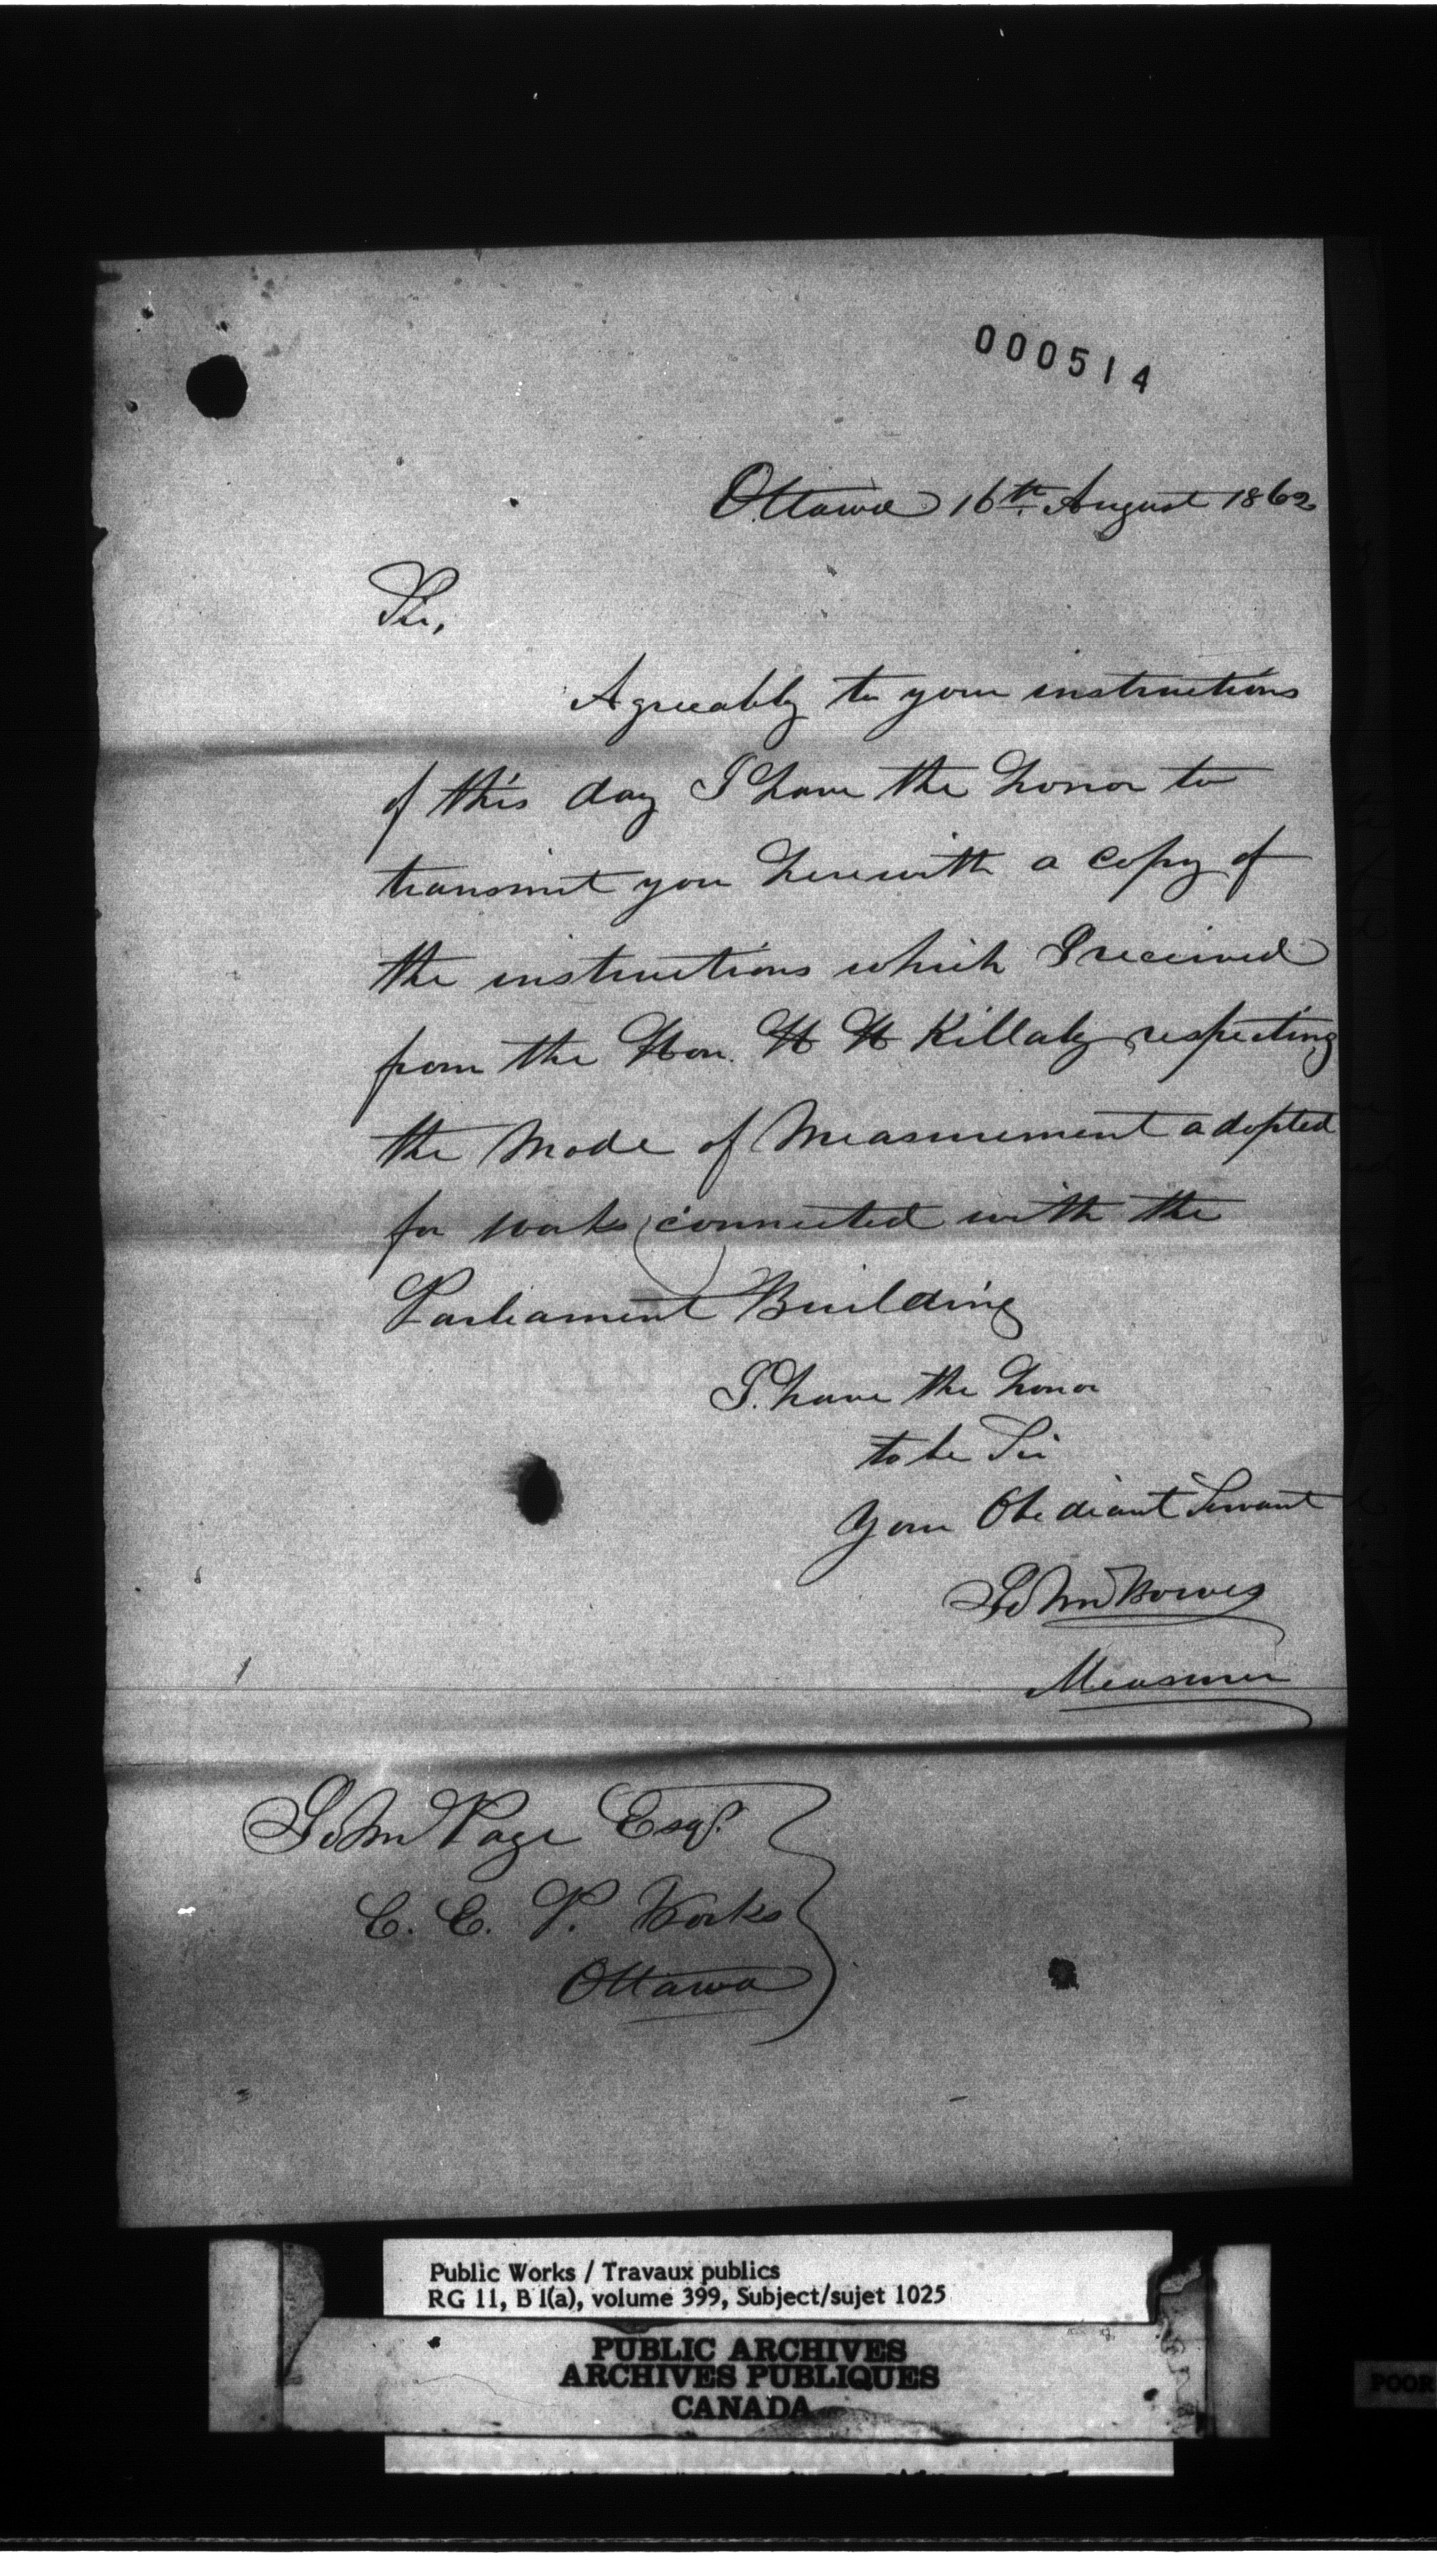 000514
Ottawa 16th. August 1862
Sir,
Agreeably to your instructions
of this day I have the honor to
transmit you herewith a copy of
the instructions which I received
from the Hon. H H Killaly respecting
the Mode of Measurement adopted
for works connected with the
Parliament Building
I. have the honor
to be Sir
Your Obediant Servant
John Bowes
Measurer
John Page Esqr.
C. E. P. Works
Ottawa
Public Works / Travaux publics
RG 11, B 1(a), volume 399, Subject/sujet 1025
PUBLIC ARCHIVES
ARCHIVES PUBLIQUES
CANADA
POOR